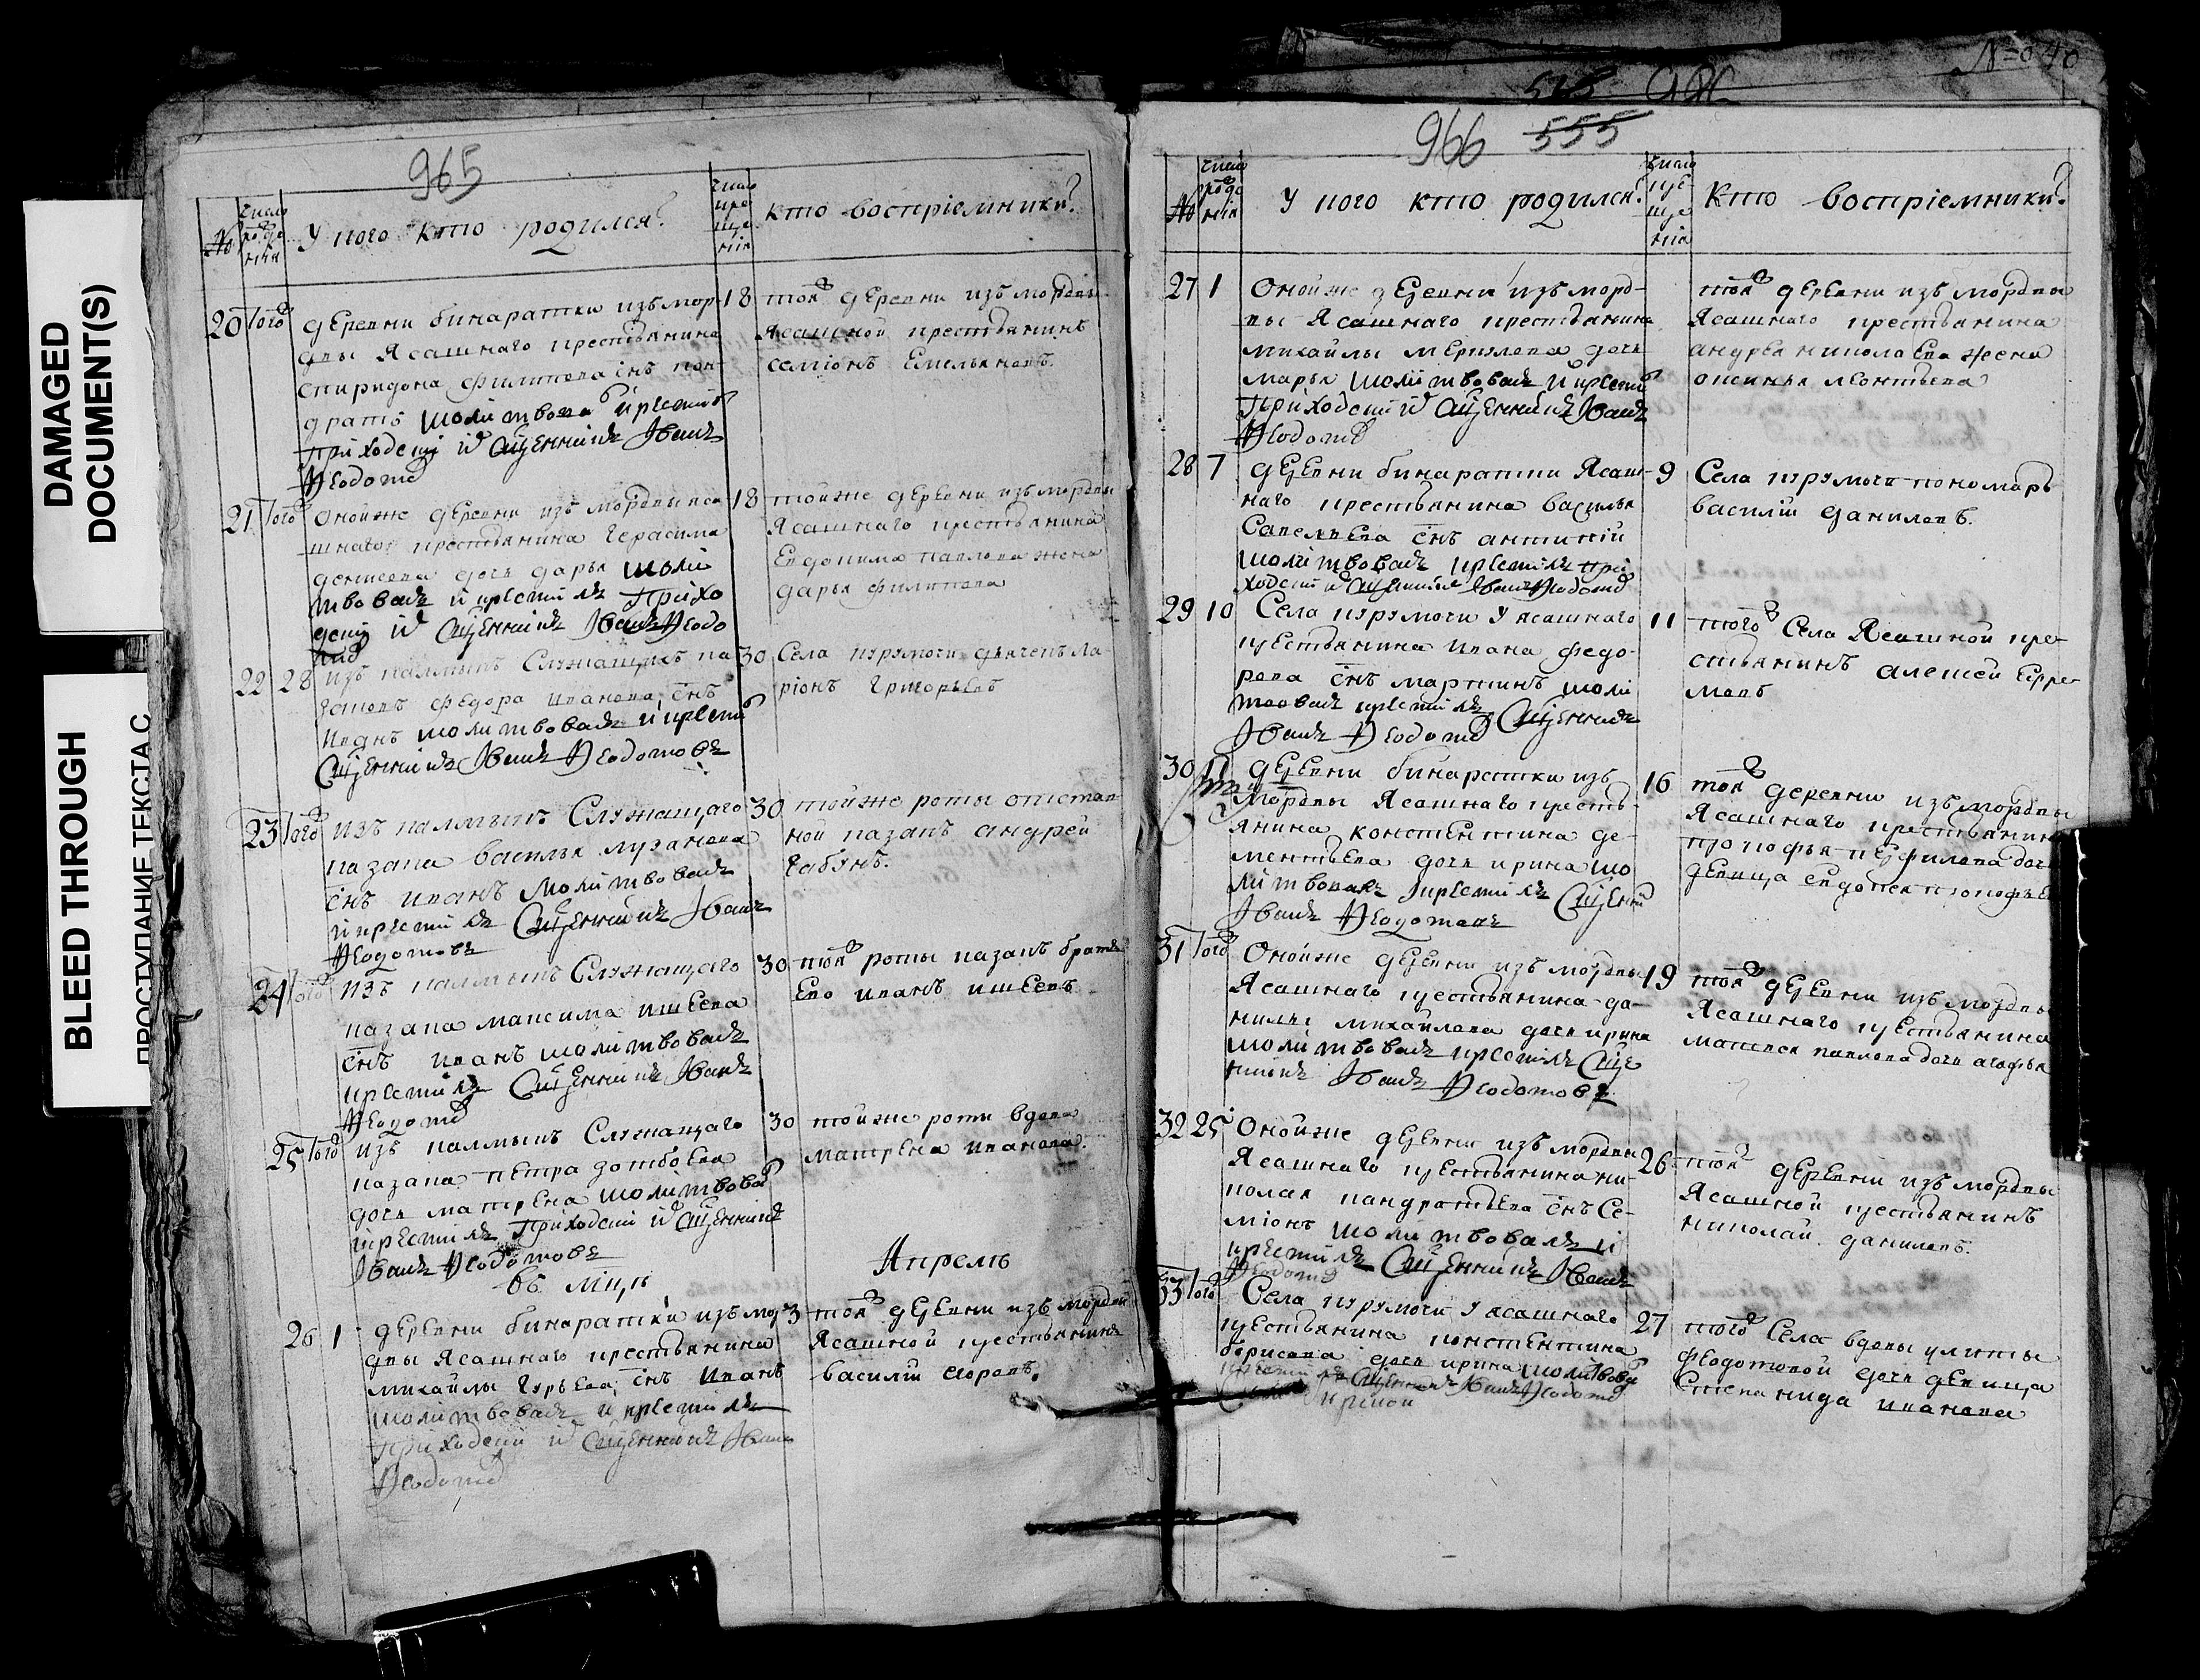 DAMAGED
DOCUMENT(S)
BLEED THROUGH
ПРОСТУПАНИЕ ТЕКСТА С
965
№
число рожде нія
У кого кто родился?
число креще нія
кто воспріемники?
20 того
деревни бинаратки изъ мор-
двы Ясашнаго крестьянина
спиридона филипова снъ кон-
дратъ молитвова и крестил
приходскій Священникъ Іванъ
Ѳедотов
18
тоя деревни изъ мордвы
Ясашной крестьянинъ
семіонъ Емельяновъ.
21 того
оной же деревни изъ мордвы яса
шнаго крестьянина Герасима
денисова дочь дарья моли
твовалъ и крестилъ прихо
дскій Священникъ Іванъ Ѳедо
тов
18
той же деревни изъ мордвы
Ясашнаго крестьянина
Евдокима павлова жена
дарья филипова
22 28
изъ калмыкъ Служащихъ ка
заковъ федора иванова снъ
Иванъ молитвовалъ и крестил
Священникъ Іванъ Ѳедотовъ
30
Села курумочи дьячекъ ла-
ріонъ Григорьевъ
23 того
изъ калмыкъ Служащаго
казака василья лузанова
снъ иванъ молитвовалъ
и крестилъ Священникъ Іванъ
Ѳедотовъ
30
той же роты отстав
ной казакъ андрей
бабунъ.
24 того
изъ калмыкъ Служащаго
казака максима ишеева
снъ иванъ молитвовалъ
крестилъ Священникъ Іванъ
Ѳедотов
30
тоя роты казакъ братъ
Ево иванъ ишеевъ
25 того
изъ калмыкъ Служащаго
казака петра
дочь матрена молитвовал
крестилъ приходскій Священникъ
Іванъ Ѳедотовъ
30
той же роты вдова
матрена иванова.
въ мцѣ
Апрелѣ
26 1
деревни бинаратки изъ мор
двы Ясашнаго крестьянина
михайлы гурьева снъ Иванъ
молитвовалъ и крестилъ
приходскій Священникъ Іванъ
Ѳедотов
3
тоя деревни изъ мордвы
Ясашной крестьянинъ
василій
№ 040
515
966 555
№
число рожде нія
У кого кто родился?
число кре ще нія
Кто воспріемники?
27 1
Оной же деревни изъ морд-
вы Ясашнаго крестьянина
михайлы меркулева дочь
марья молитвовалъ и крестил
приходскій Священникъ Іванъ
Ѳедотов
тоя деревни изъ мордвы
Ясашнаго крестьянина
андрея николаева жена
оксинья леонтьева
28 7
деревни бинаратки Ясаш-
наго крестьянина василья
Савельева снъ антипій
молитвовалъ крестилъ при
ходскій Священникъ Іванъ Ѳедотов
9
Села курумочи пономарь
василій даниловъ.
29 10
Села курумочи у ясашнаго
крестьянина ивана федо-
рова снъ мартинъ моли
твовалъ крестилъ Священникъ
Іванъ Ѳедотов
11
того Села Ясашной кре-
стьянинъ алексей Ефре-
мовъ
30 11
деревни бинаратки изъ
Мордвы Ясашнаго кресть-
янина константина де-
ментьева дочь ирина мо
литвовалъ крестилъ Священни
Іванъ Ѳедотовъ
16
тоя деревни изъ мордвы
Ясашнаго крестьянина
прокофья перфилова дочь
девица евдокея прокофьев
31 того
Оной же деревни изъ мордвы
Ясашнаго крестьянина да-
нилы михайлова дочь ирина
молитвовалъ крестилъ Сще
нникъ Іванъ Ѳедотовъ
19
тоя деревни изъ мордвы
Ясашнаго крестьянина
матвея павлова дочь агафья
32 25
Оной же деревни изъ мордвы
Ясашнаго крестьянина ни-
колая кандратьева снъ Се-
міонъ молитвовалъ и
крестилъ Священникъ Іванъ
Ѳедотов
26
тоя деревни изъ мордвы
Ясашной крестьянинъ
николай даниловъ.
33 того
Села курумочи у ясашнаго
крестьянина константина
борисова дочь ирина молитвова
крестилъ Священникъ Іванъ Ѳедотов
27
того Села вдовы улиты
федотовой дочь девица
Степанида иванова